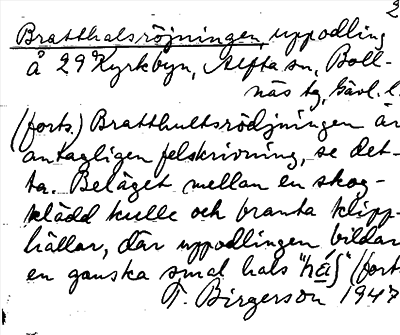 2
Bratthalsröjningen, uppodling
å 29 Kyrkbyn, Alfta sn, Boll-
näs tg, Gävl. l.
(forts.) Bratthultsrödjningen är
antagligen felskrivning, se det-
ta. Beläget mellan en skog-
klädd kulle och branta klipp-
hällar, där uppodlingen bildar
en ganska smal hals "hɑ́ʃ" (forts.
T. Birgerson 1947